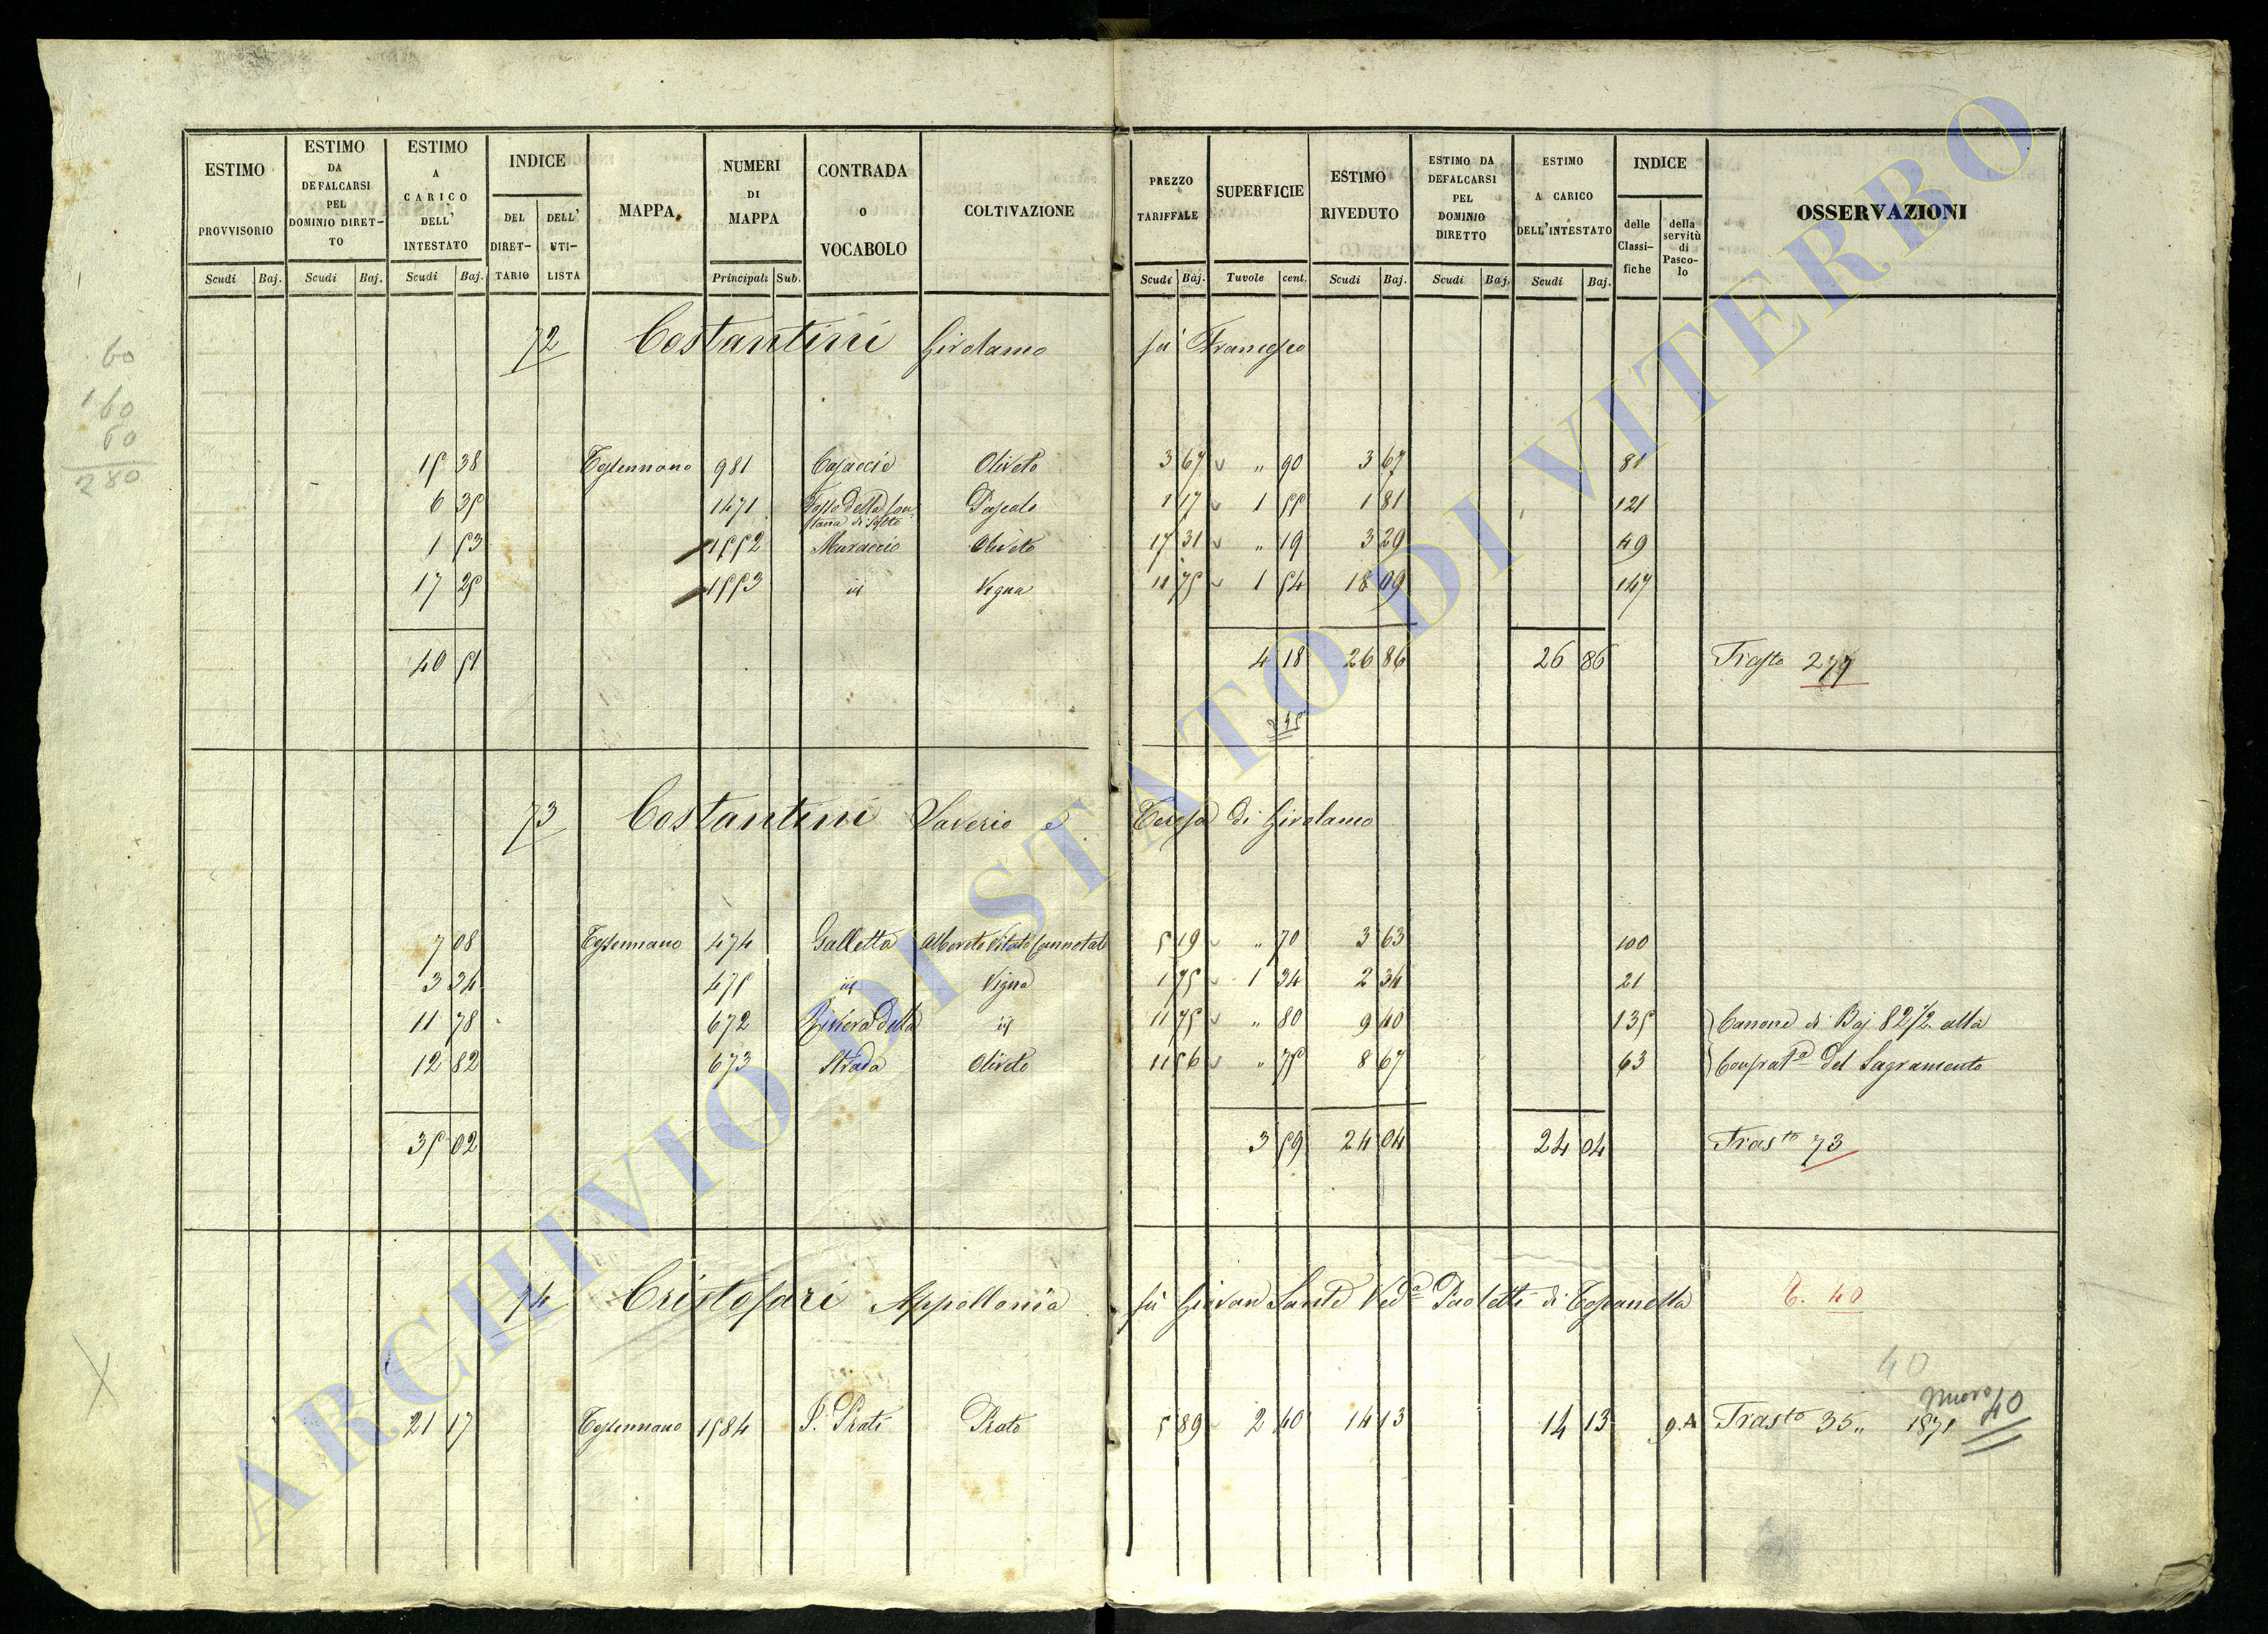 ESTIMO PROVVISORIO Scudi Baj. | ESTIMO DA DEFALCARSI PEL DOMINIO DIRETTO Scudi Baj. | ESTIMO A CARICO DELL' INTESTATO Scudi Baj. | INDICE DEL DIRETTARIO DELL' UTILISTA | MAPPA | NUMERI DI MAPPA Principali Sub. | CONTRADA O VOCABOLO | COLTIVAZIONE | PREZZO TARIFFALE Scudi Baj. | SUPERFICIE Tavole cent. | ESTIMO RIVEDUTO Scudi Baj. | ESTIMO DA DEFALCARSI PEL DOMINIO DIRETTO Scudi Baj. | ESTIMO A CARICO DELL'INTESTATO Scudi Baj. | INDICE delle Classifiche della servitù di Pascolo | OSSERVAZIONI
60
160
60
280
72 Costantini Girolamo fù Francesco
15 38 Tessennano 981 Casaccio Oliveto 3 67 " 90 3 67 81
6 35 1471 Fosso della fontana di sotto Pascolo 1 17 1 55 1 81 121
1 53 1552 Muraccio Oliveto 17 31 " 19 3 29 49
17 25 1553 id Vigna 11 75 1 54 18 09 147
40 51 4 18 26 86 26 86 Trasto 277
245
73 Costantini Saverio e Teresa di Girolamo
7 08 Tessennano 474 Galletta Alboreto Vitato 5 19 " 70 3 63 100
3 34 475 id Vigna 1 75 1 34 2 34 21
11 78 672 Riviera della id 11 75 " 80 9 40 135 Canone di Baj 82 1/2 alla
12 82 673 Strada Oliveto 11 56 " 75 8 67 63 Confrat.a del Sagramento
35 02 3 59 24 04 24 04 Trasto 73
74 Cristofari Appollonia fù Giovan Sante Ved.a Paoletti di Toscanella T. 40
40
nuovo 40
X 21 17 Tessennano 1584 P. Prati Prato 5 89 2 40 14 13 14 13 9.A Trasto 35 " 1871
ARCHIVIO DI STATO DI VITERBO